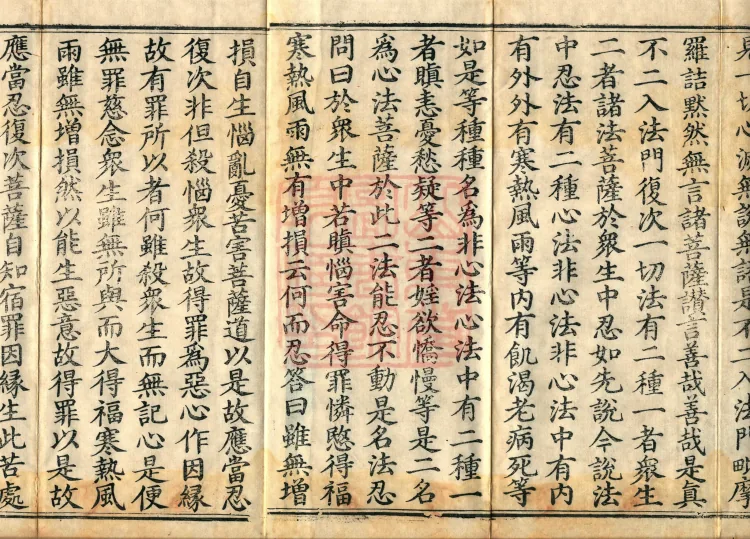 一切心滅無說無是不二入法門毗摩
羅詰默然無言諸菩薩讚言善哉善哉是真
不二入法門復次一切法有二種一者衆生
二者諸法菩薩於衆生中忍如先說今說法
中忍法有二種心法非心法非心法中有內
有外外有寒熱風雨等內有飢渴老病死等
如是等種種名爲非心法心法中有二種一
者瞋恚憂愁疑等二者婬欲憍慢等是二名
爲心法菩薩於此二法能忍不動是名法忍
問曰於衆生中若瞋惱害命得罪憐愍得福
寒熱風雨無有增損云何而忍答曰雖無增
損自生惱亂憂苦害菩薩道以是故應當忍
復次非但殺惱衆生故得罪爲惡心作因緣
故有罪所以者何雖殺衆生而無記心是便
無罪慈念衆生雖無所與而大得福寒熱風
雨雖無增損然以能生惡意故得罪以是故
應當忍復次菩薩自知宿罪因緣生此苦處